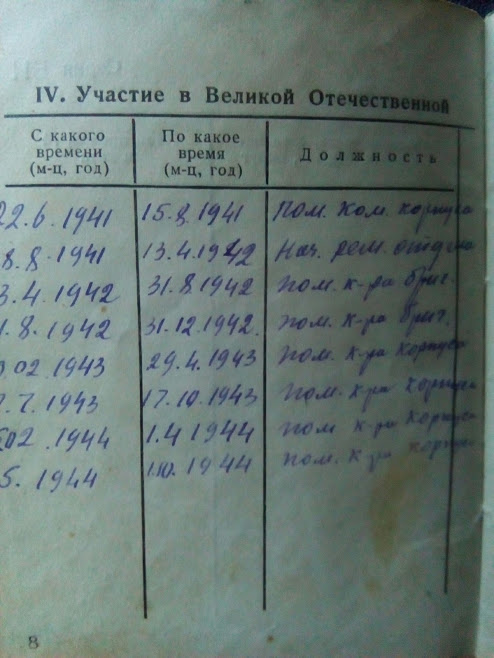 IV. Участие в Великой Отечественной
С какого времени (м-ц, год) По какое время (м-ц, год) Должность
22.6.1941 15.8.1941 Пом. Ком. корпуса
8.8.1941 13.4.1942 Нач. рем. отдела
3.4.1942 31.8.1942 Пом. к-ра бриг.
1.8.1942 31.12.1942. Пом. к-ра бриг.
02.1943 29.4.1943 Пом. к-ра корпуса
7.1943 17.10.1943 Пом. к-ра корпуса
02.1944 1.4.1944 Пом. к-ра корпуса
5.1944 1.10.1944 Пом. к-ра корпуса
8